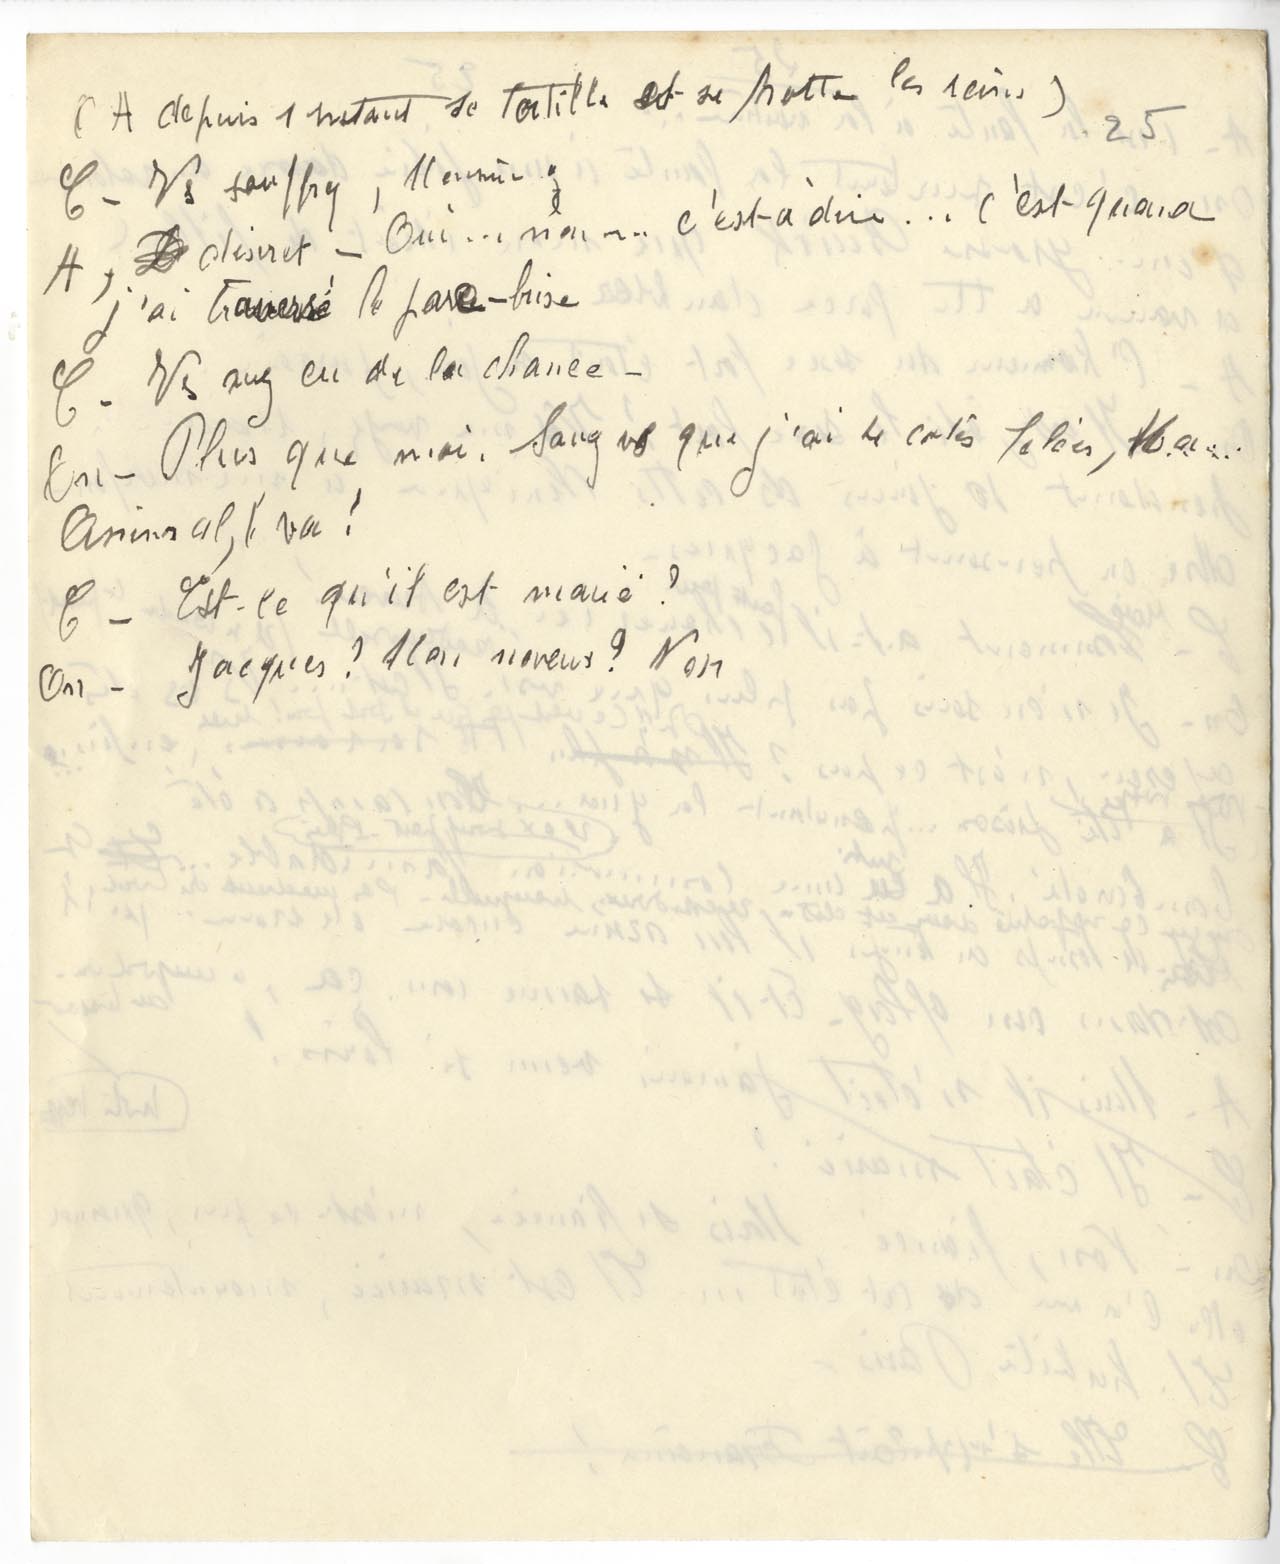 ( A depuis 1 instant se tortille et se frotte les reins )
25
C - Vs souffrez, Monsieur ?
A, discret - Oui... non... c'est-à-dire... c'est quand
j'ai traversé le pare-brise
C - Vs avez eu de la chance -
On - Plus que moi. Songez vs que j'ai 2 côtes fêlées,
Animal, va !
C - Est-ce qu'il est marié ?
On - Jacques ? Mon neveu ? Non